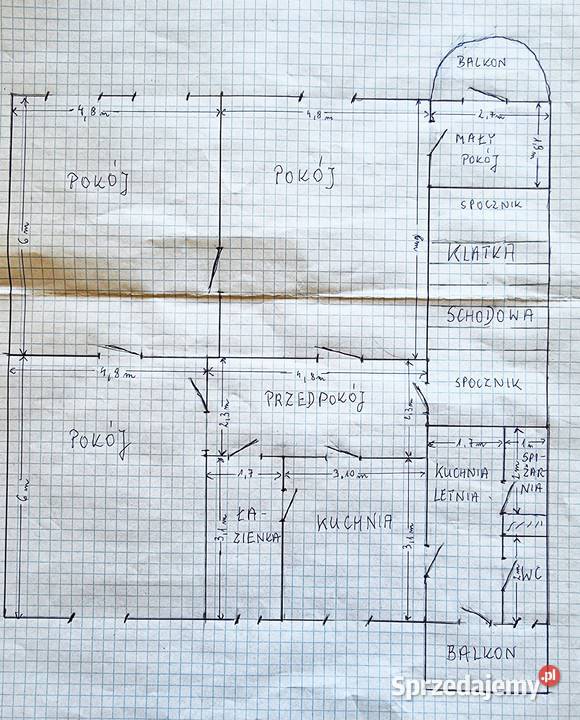 BALKON
4,8m
4,8m
2,7m
MAŁY
POKÓJ
POKÓJ
POKÓJ
SPOCZNIK
6m
6m
KLATKA
SCHODOWA
4,8m
4,8m
PRZEDPOKÓJ
SPOCZNIK
2,3m
2,3m
POKÓJ
1,7m
1m
1,7
3,10m
KUCHNIA
LETNIA
SPI-
ŻAR
NIA
6m
ŁA-
ZIENKA
KUCHNIA
3,1m
3,1m
WC
BALKON
Sprzedajemy.pl